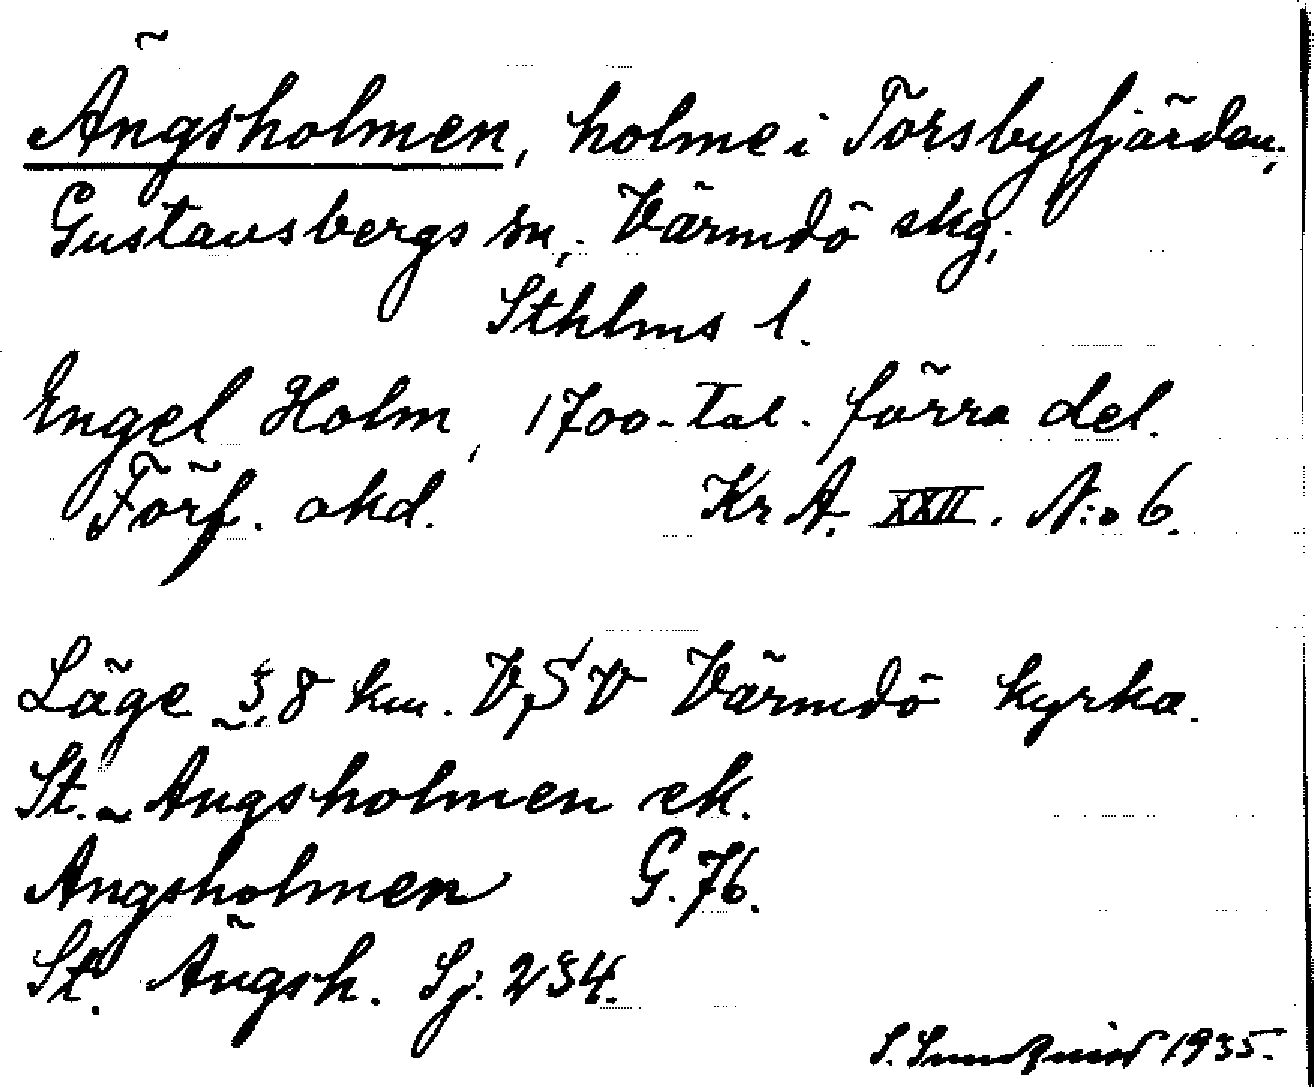 Ängsholmen, holme i Torsbyfjärden,
Gustavsbergs sn, Värmdö skg,
Sthlms l.
Engel Holm, 1700-tal. förra del.
Förf. okd. Kr A. XXII. N:o 6.
Läge 3,8 km. VSV Värmdö kyrka.
St. Ängsholmen ek.
Ängsholmen G. 76.
St. Ängsh. Sj. 234.
S. Sundqvist 1935.